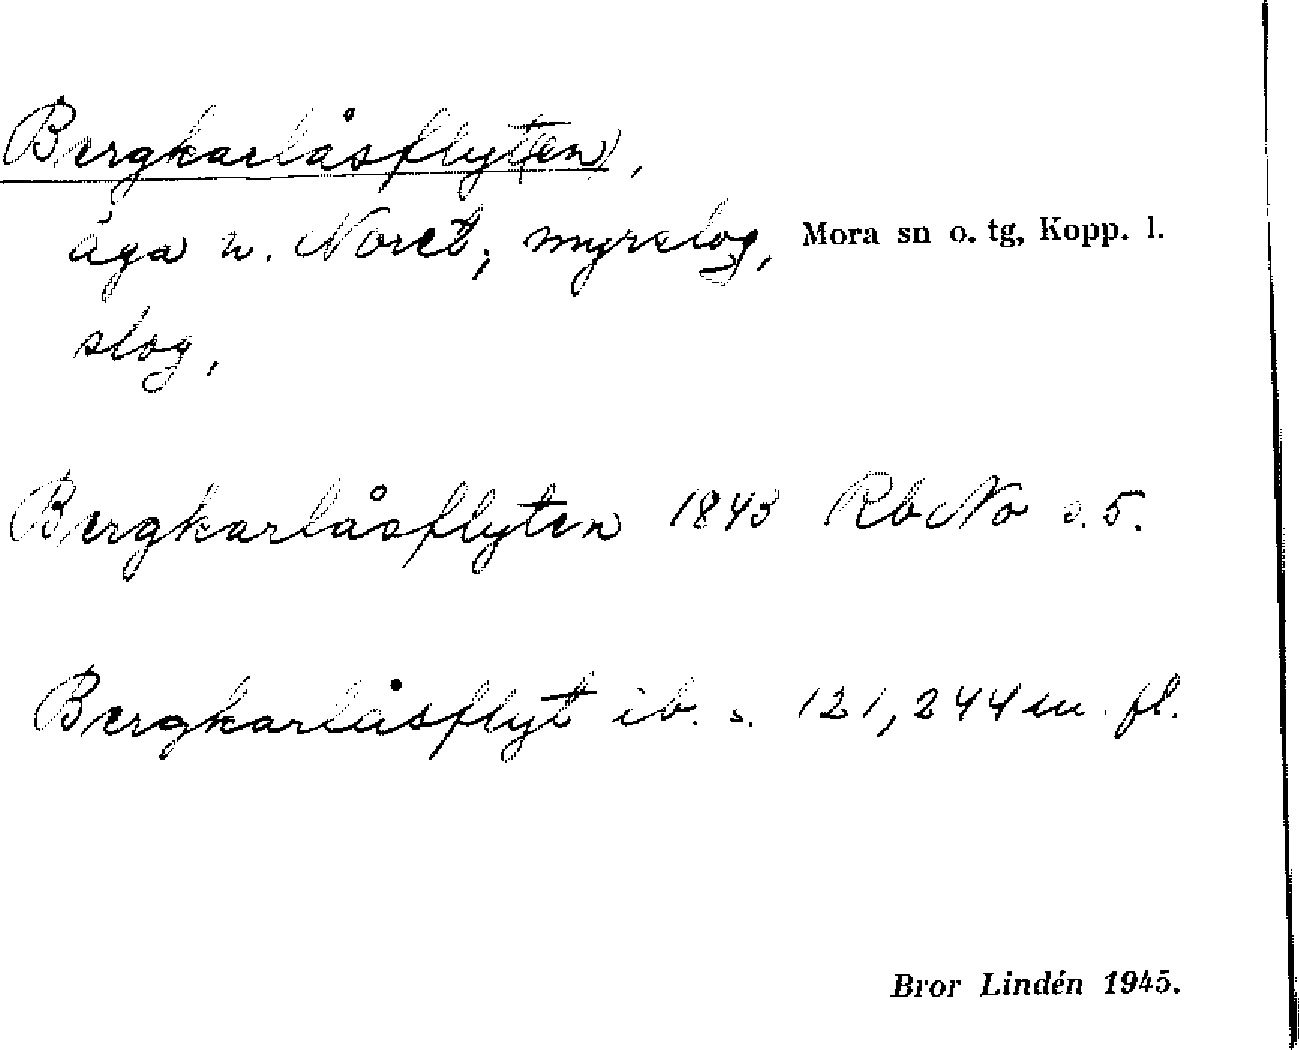 Bergkarlåsflyt(en),
äga n. Noret; myrslog, Mora sn o. tg, Kopp. l.
slog,
Bergkarlåsflyten 1843 RbNo s. 5.
Bergkarlåsflyt ib. s. 121, 244 m. fl.
Bror Lindén 1945.